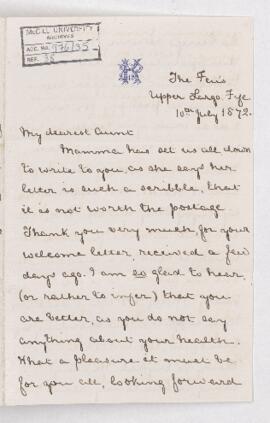 McGILL UNIVERSITY
ARCHIVES
ACC. NO. 976/35
REF. 38
Upper Largo, Fife
10th July 1872.
My dearest Aunt
Mamma has set us all down
to write to you, as she says her
letter is such a scribble, that
it is not worth the postage
Thank you very much, for your
welcome letter, received a few
days ago. I am so glad to hear,
(or rather to infer) that you
are better, as you do not say
anything about your health.
What a pleasure it must be
for you all, looking forward